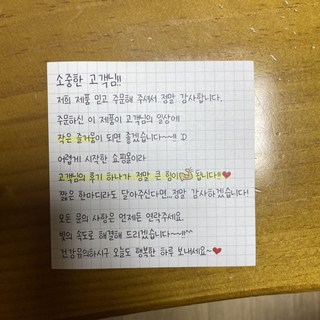 소중한 고객님!!
저희 제품 믿고 주문해 주셔서 정말 감사합니다.
주문하신 이 제품이 고객님의 일상에
작은 즐거움이 되면 좋겠습니다~~!! :D
어렵게 시작한 쇼핑몰이라
고객님의 후기 하나가 정말 큰 힘이 됩니다!!❤
짧은 한마디라도 달아주신다면...정말 감사하겠습니다!
모든 문의 사항은 언제든 연락주세요.
빛의 속도로 해결해 드리겠습니다~!!^^
건강유의하시구 오늘도 행복한 하루 보내세요~❤